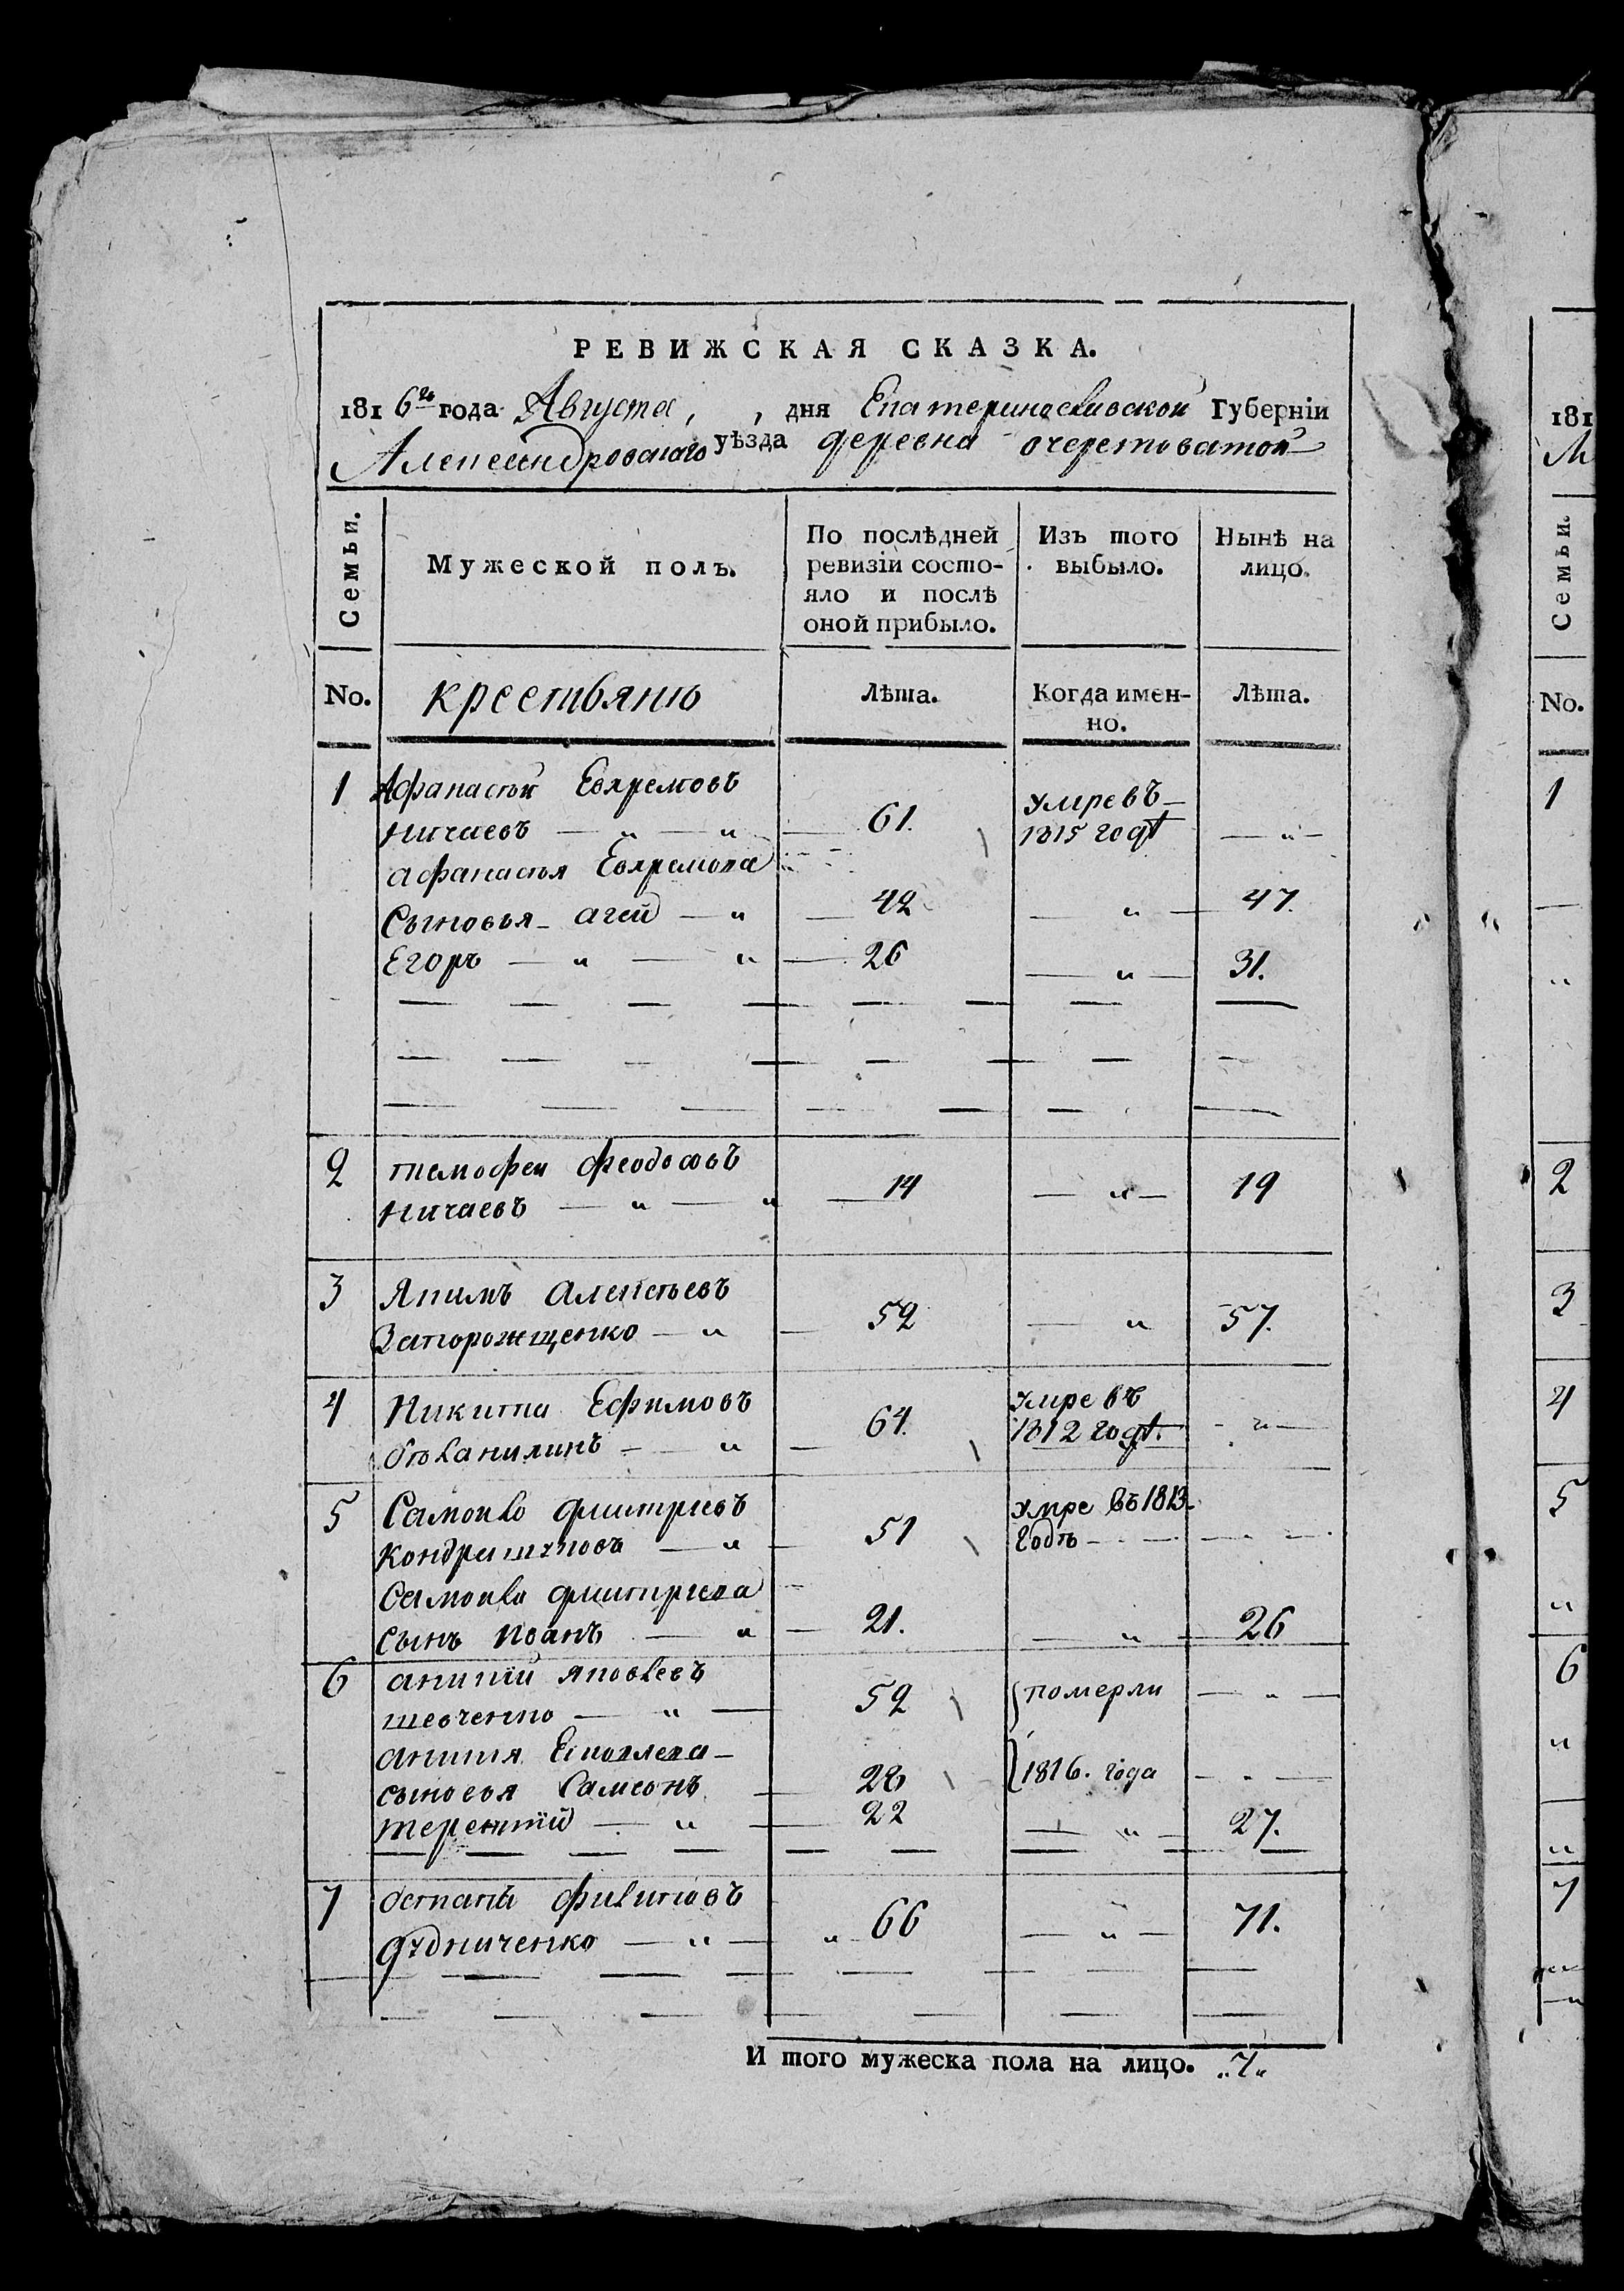 РЕВИЖСКАЯ СКАЗКА.
1816го года Августа, , дня Екатеринославской Губерніи
Александровского уѣзда деревна очеретоватой
Семьи.
Мужеской полъ.
По послѣдней ревизіи состо-
яло и послѣ
оной прибыло.
Изъ того
выбыло.
Нынѣ на
лицо.
No.
крестьянъ
Лѣта.
Когда имен-
но.
Лѣта.
1 Афанасѣй Евхремовъ
Ничаевъ — „ — „ — 61. умре въ
1815 годѣ — „ —
афанасья Евхремова
Сыновья – агей — „ — 42 — „ — 47.
Егоръ — „ — „ — 26 — „ — 31.
2 тимофеи феодосовъ
Ничаевъ — „ — „ — 14 — „ — 19
3 Якимъ алексѣевъ
Запорожщенко — „ — 52 — „ 57.
4 Никита Ефимовъ
— „ — 64. умре въ
1812 годѣ. – „ —
5 Самойло дмитриевъ
— „ — 51 умре въ 1813.
Годѣ
Самойла дмитриева
сынъ иванъ — „ — 21. — „ — 26
6 яковлевъ
шевченко — „ — 52 померли — „ —
сыновья Самсонъ — 28 1816. года — „ —
терентий — „ — 22 — „ — 27.
7 филиповъ
дудниченко — „ — „ 66 — „ — 71.
И того мужеска пола на лицо. „7„
181
Семьи.
No.
1
2
3
4
5
6
7